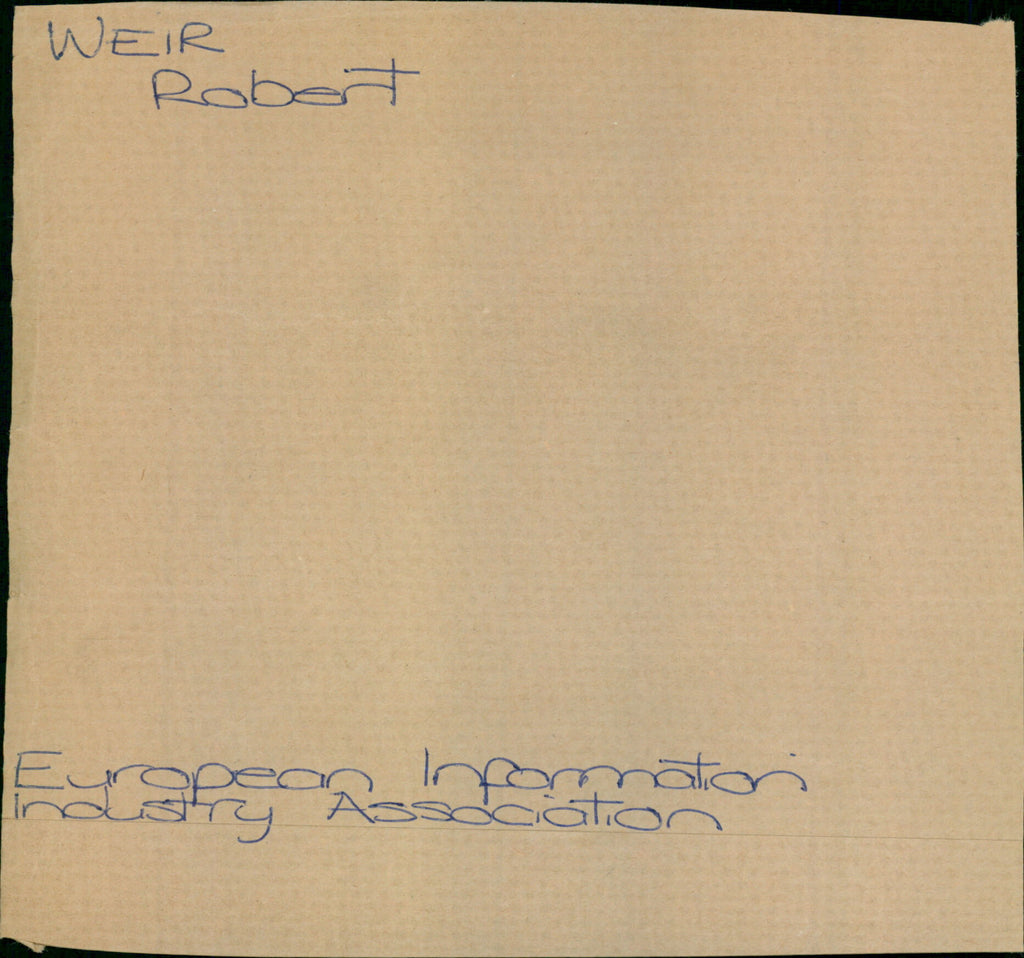 WEIR
Robert
European Information
Industry Association